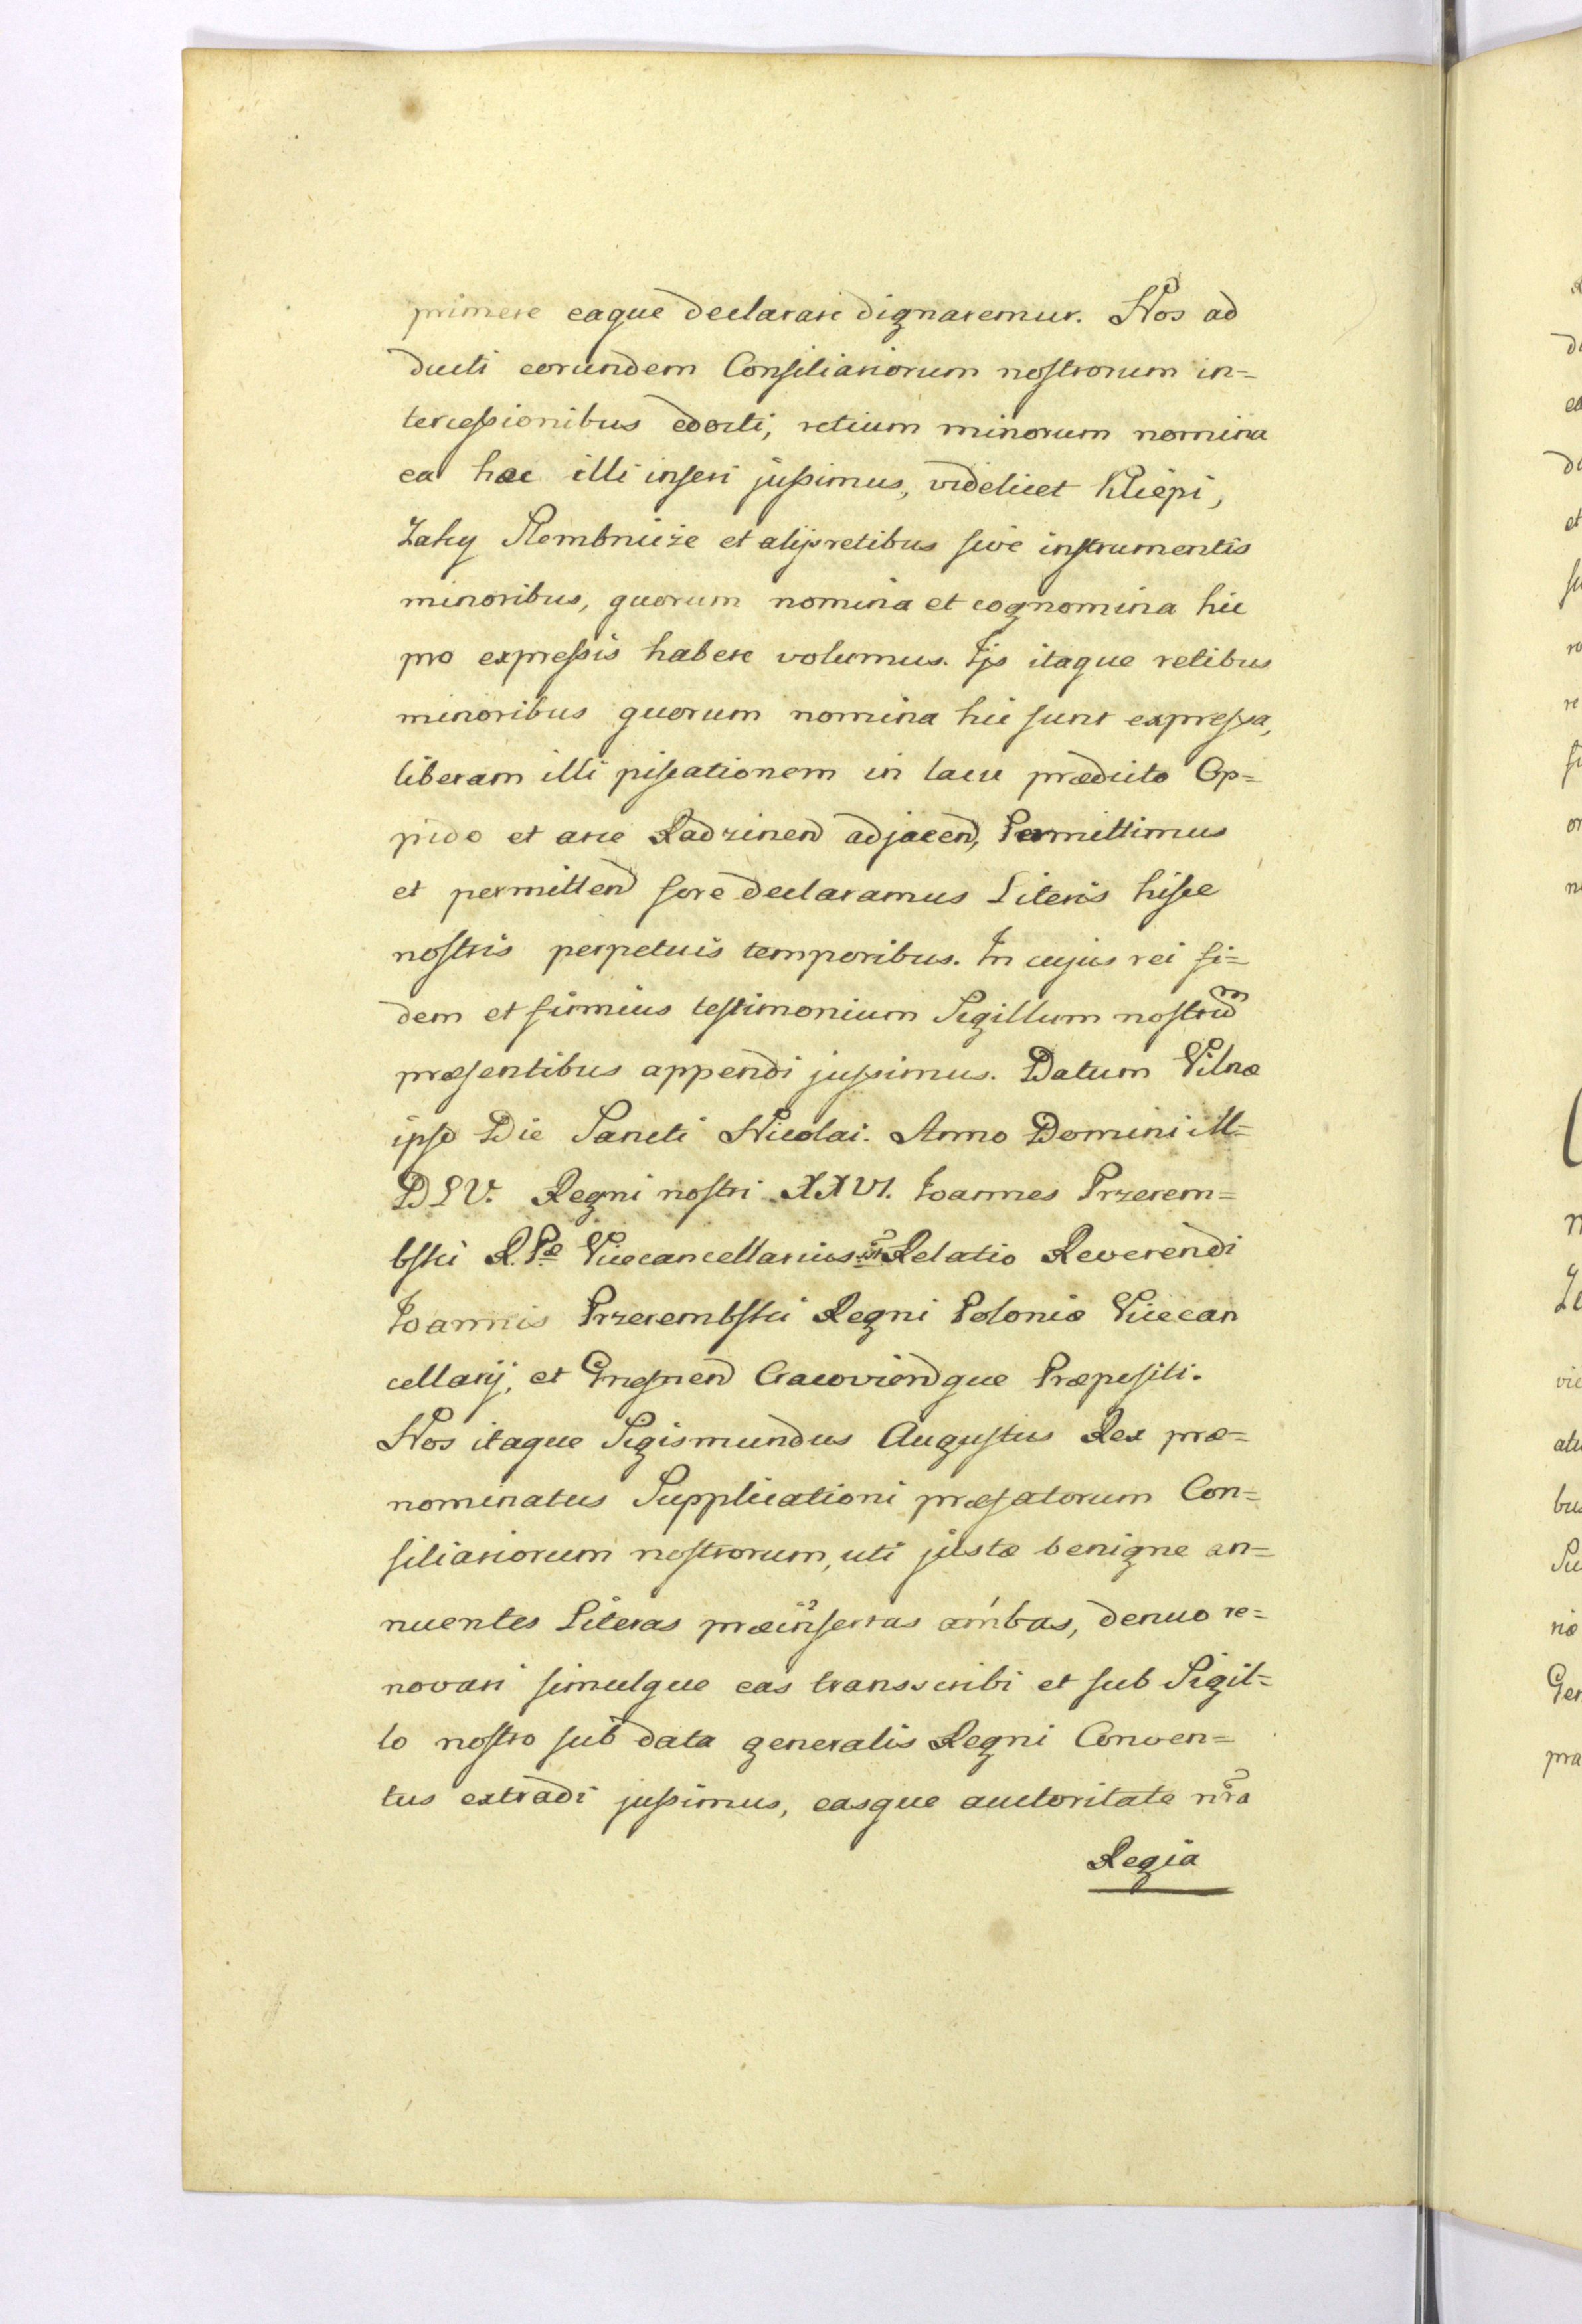 primere eaque declarare dignaremur. Nos ad
ducti eorundem Consiliariorum nostrorum in=
tercessionibus edocti, retium minorum nomina
ea hac illi inseri jussimus, videlicet Kliepi,
Zaky Rembnicze et alijs retibus sive instrumentis
minoribus, quorum nomina et cognomina hic
pro expressis habere volumus. Ijs itaque retibus
minoribus quorum nomina hic sunt expressa,
liberam illi piscationem in lacu prædicto Op=
pido et arce Radzinen adjacen, Permittimus
et permitten fore declaramus Literis hisce
nostris perpetuis temporibus. In cujus rei fi=
dem et firmius testimonium Sigillum nostrum
præsentibus appendi jussimus. Datum Vilnæ
ipso Die Sancti Nicolai. Anno Domini M=
DLV. Regni nostri XXVI. Ioannes Przerem=
bski R. Pæ Vicecancellarius Relatio Reverendi
Ioannis Przerembski Regni Poloniæ Vicecan
cellarij, et Gnesnen Cracovienque Præpositi.
Nos itaque Sigismundus Augustus Rex præ=
nominatus Supplicationi præfatorum Con=
siliariorum nostrorum, uti justæ benigne an=
nuentes Literas præinsertas ambas, denuo re=
novari simulque eas transscribi et sub Sigil=
lo nostro sub data generalis Regni Conven=
tus extradi jussimus, easque auctoritate nra
Regia